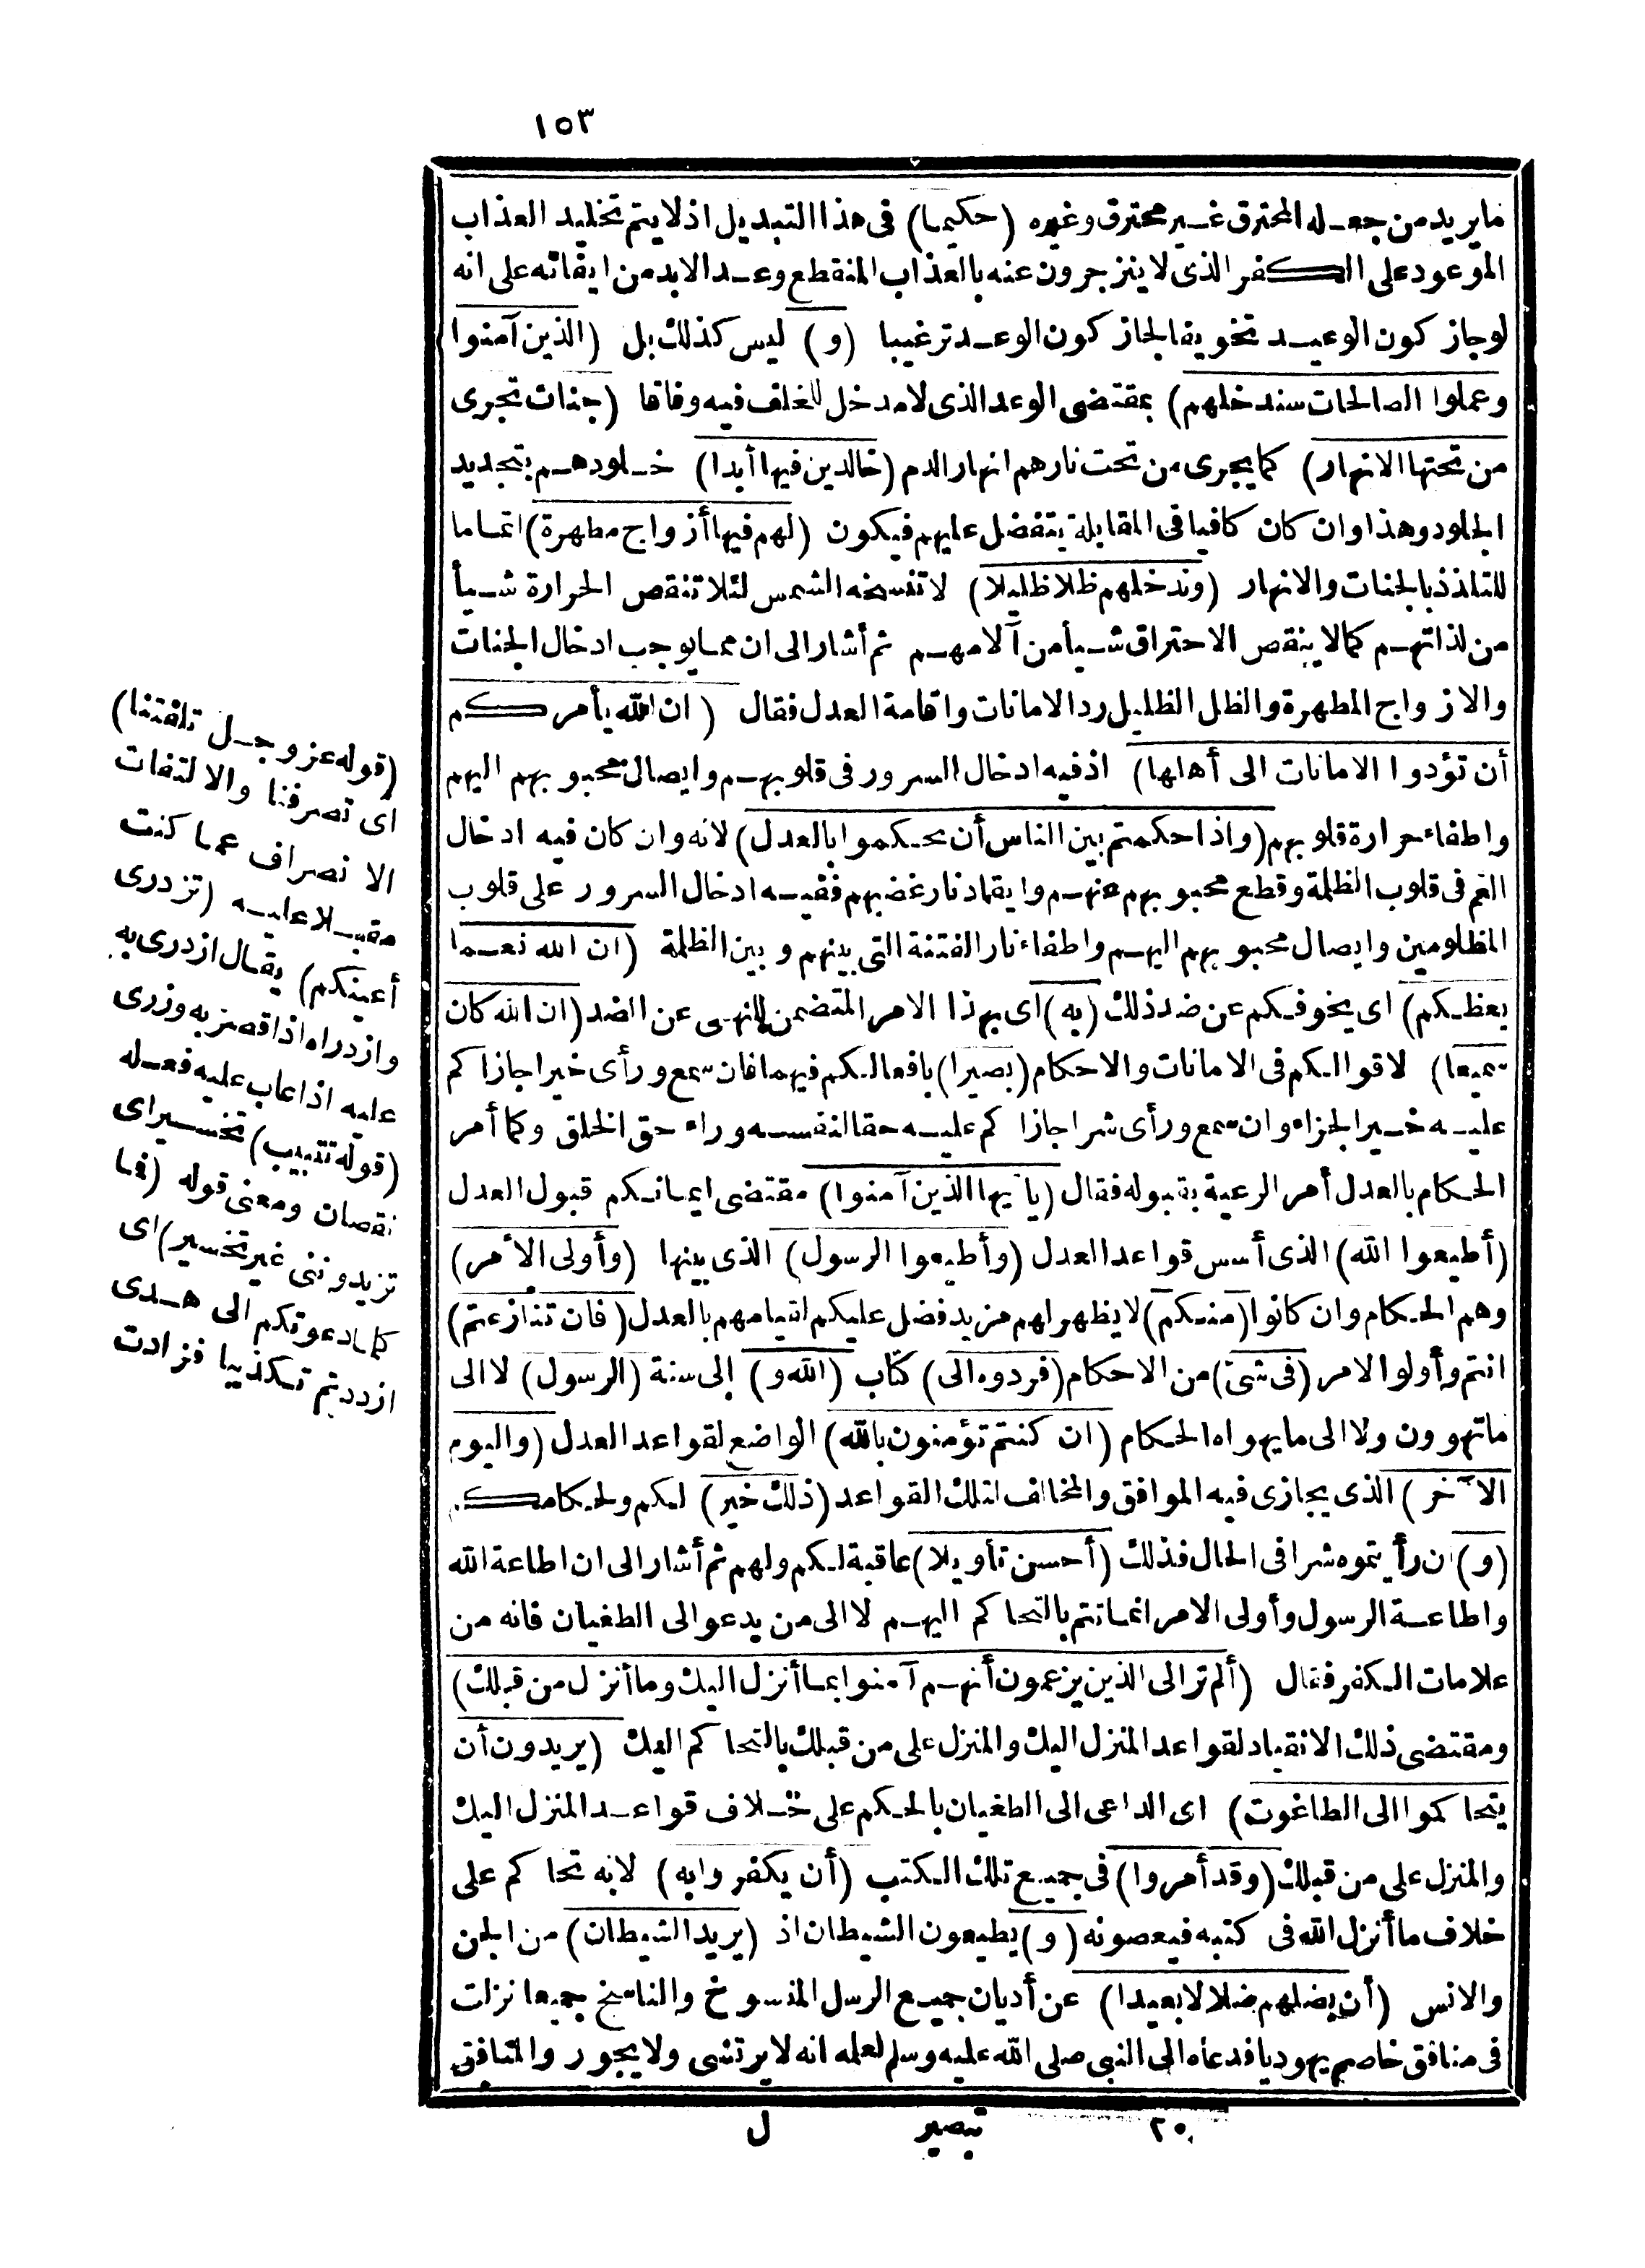 ١٥٣
ما يريد من جعله المحترق غير محترق وغيره (حكيما) فى هذا التبديل اذ لا يتم تخليد العذاب
الموعود على الكفر الذى لا ينزجرون عنه بالعذاب المنقطع وعد الابد من ايقائه على انه
لو جاز كون الوعيد تخويفا لجاز كون الوعد ترغيبا (و) ليس كذلك بل (الذين آمنوا
وعملوا الصالحات سندخلهم) بمقتضى الوعد الذى لا مدخل للخلف فيه وفاقا (جنات تجرى
من تحتها الانهار) كما يجرى من تحت نارهم انهار الدم (خالدين فيها أبدا) خلودهم بتجديد
الجلود وهذا وان كان كافيا فى المقابلة يتفضل عليهم فيكون (لهم فيها أزواج مطهرة) اتماما
للتلذذ بالجنات والانهار (وندخلهم ظلا ظليلا) لا تنسخه الشمس لئلا تنقص الحرارة شيأ
من لذاتهم كما لا ينقص الاحتراق شيأ من آلامهم ثم أشار الى ان مما يوجب ادخال الجنات
والازواج المطهرة والظل الظليل رد الامانات واقامة العدل فقال (ان الله يأمركم
أن تؤدوا الامانات الى أهلها) اذ فيه ادخال السرور فى قلوبهم وايصال محبوبهم اليهم
واطفاء حرارة قلوبهم (واذا حكمتم بين الناس أن تحكموا بالعدل) لانه وان كان فيه ادخال
الغم فى قلوب الظلمة وقطع محبوبهم عنهم وايقاد نار غضبهم ففيه ادخال السرور على قلوب
المظلومين وايصال محبوبهم اليهم واطفاء نار الفتنة التى بينهم وبين الظلمة (ان الله نعما
يعظكم) اى يخوفكم عن ضد ذلك (به) اى بهذا الامر المتضمن للنهى عن الضد (ان الله كان
سميعا) لاقوالكم فى الامانات والاحكام (بصيرا) بافعالكم فيهما فان سمع ورأى خيرا جازاكم
عليه خير الجزاء وان سمع ورأى شرا جازاكم عليه حقا لنفسه وراء حق الخلق وكما أمر
الحكام بالعدل أمر الرعية بقبوله فقال (يا أيها الذين آمنوا) مقتضى ايمانكم قبول العدل
(أطيعوا الله) الذى أسس قواعد العدل (وأطيعوا الرسول) الذى بينها (وأولى الأمر)
وهم الحكام وان كانوا (منكم) لا يظهر لهم مزيد فضل عليكم لقيامهم بالعدل (فان تنازعتم)
انتم وأولوا الامر (فى شئ) من الاحكام (فردوه الى) كتاب (الله و) إلى سنة (الرسول) لا الى
ما تهوون ولا الى ما يهواه الحكام (ان كنتم تؤمنون بالله) الواضع لقواعد العدل (واليوم
الآخر) الذى يجازى فيه الموافق والمخالف لتلك القواعد (ذلك خير) لكم ولحكامكم
(و) ان رأيتموه شرا فى الحال فذلك (أحسن تأويلا) عاقبة لكم ولهم ثم أشار الى ان اطاعة الله
واطاعة الرسول وأولى الامر انما تتم بالتحاكم اليهم لا الى من يدعو الى الطغيان فانه من
علامات الكفر فقال (ألم تر الى الذين يزعمون أنهم آمنوا بما أنزل اليك وما أنزل من قبلك)
ومقتضى ذلك الانقياد لقواعد المنزل اليك والمنزل على من قبلك بالتحاكم اليك (يريدون أن
يتحاكموا الى الطاغوت) اى الداعى الى الطغيان بالحكم على خلاف قواعد المنزل اليك
والمنزل على من قبلك (وقد أمروا) فى جميع تلك الكتب (أن يكفروا به) لانه تحاكم على
خلاف ما أنزل الله فى كتبه فيعصونه (و) يطيعون الشيطان اذ (يريد الشيطان) من الجن
والانس (أن يضلهم ضلالا بعيدا) عن أديان جميع الرسل المنسوخ والناسخ جميعا نزلت
فى منافق خاصم يهوديا فدعاه الى النبى صلى الله عليه وسلم لعلمه انه لا يرتشى ولا يجور والمنافق
(قوله عز وجل تلفتنا)
اى تصرفنا والالتفات
الانصراف عما كنت
مقبلا عليه (تزدرى
أعينكم) يقال ازدرى به
وازدراه اذا قصر به وزرى
عليه اذا عاب عليه فعله
(قوله تتبيب) تخسير اى
نقصان ومعنى قوله (فما
تزيدوننى غير تخسير) اى
كلما دعوتكم الى هدى
ازددتم تكذيبا فزادت
٢٠ تبصير ل